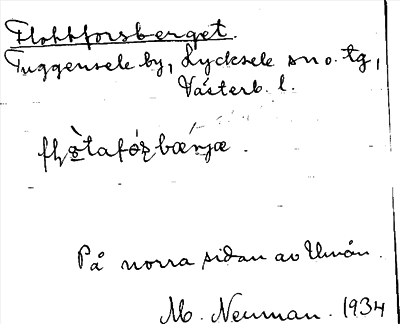 Flottforsberget.
Tuggensele by, Lycksele sn o. tg,
Västerb. l.
På norra sidan av Umån.
M. Neuman. 1934